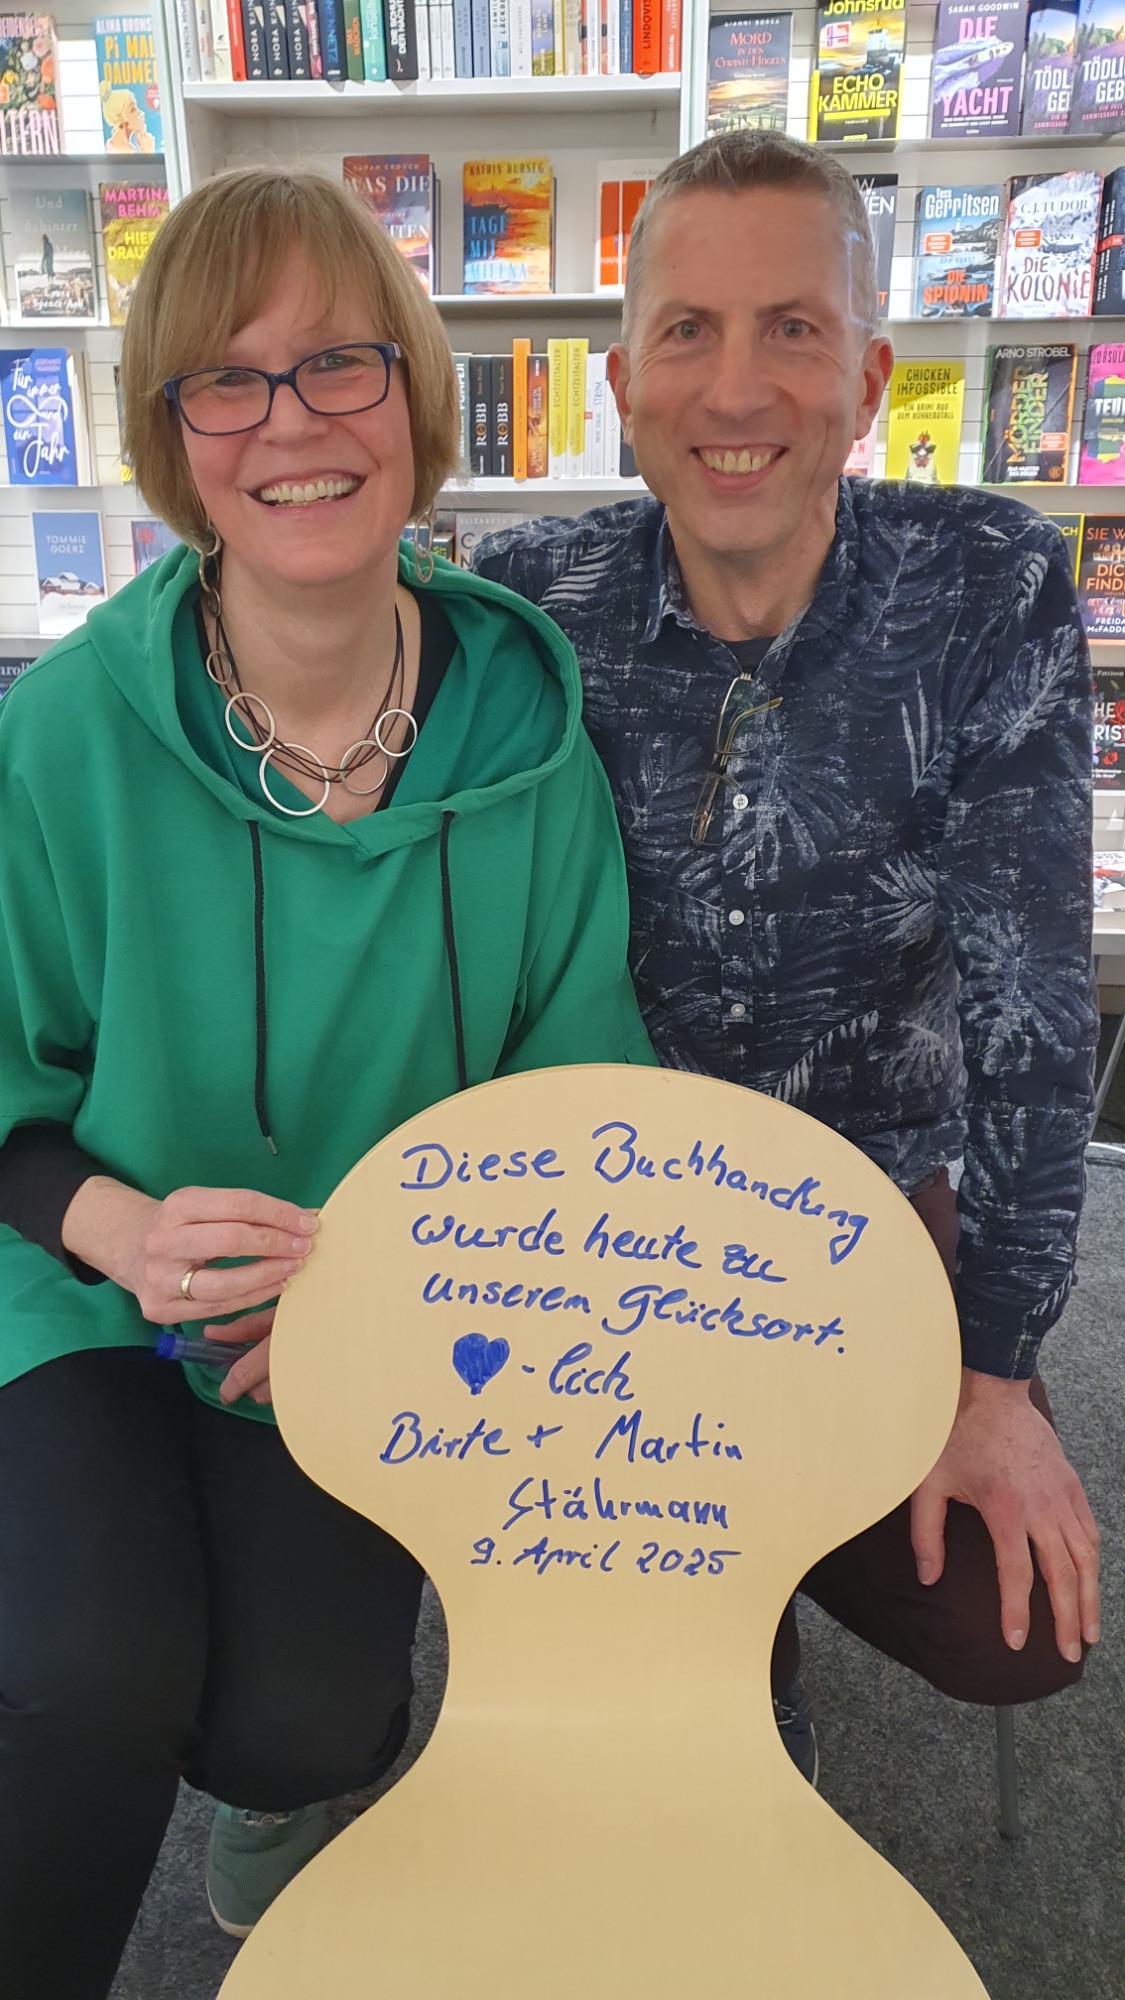 NORA
NORA
NORA
LINDQVIST
GIANNI BORSA
MORD
IN DEN
CHIANTI-HÜGELN
Johnsrud
ECHO
KAMMER
THRILLER
SARAH GOODWIN
DIE
YACHT
Pi MAL
DAUMEN
Und
dahinter
MARTINA
BEHM
SARAH CROUCH
WAS DIE
KATRIN BURSEG
TAGE
MIT
MILENA
Tess
Gerritsen
DIE
SPIONIN
C.J. TUDOR
DiE
KOLONiE
Für
immer
und
ein
Jahr
ROBB
ROBB
ECHTZEITALTER
ECHTZEITALTER
STROM
CHICKEN
IMPOSSIBLE
EIN KRIMI AUS
DEM HÜHNERSTALL
ARNO STROBEL
MÖRDER
FINDER
TOMMIE
GOERZ
ELIZABETH
SIE W
DICH
FINDEN
FREIDA
McFADDEN
Diese Buchhandlung
wurde heute zu
unserem Glücksort.
- lich
Birte + Martin
Stährmann
9. April 2025